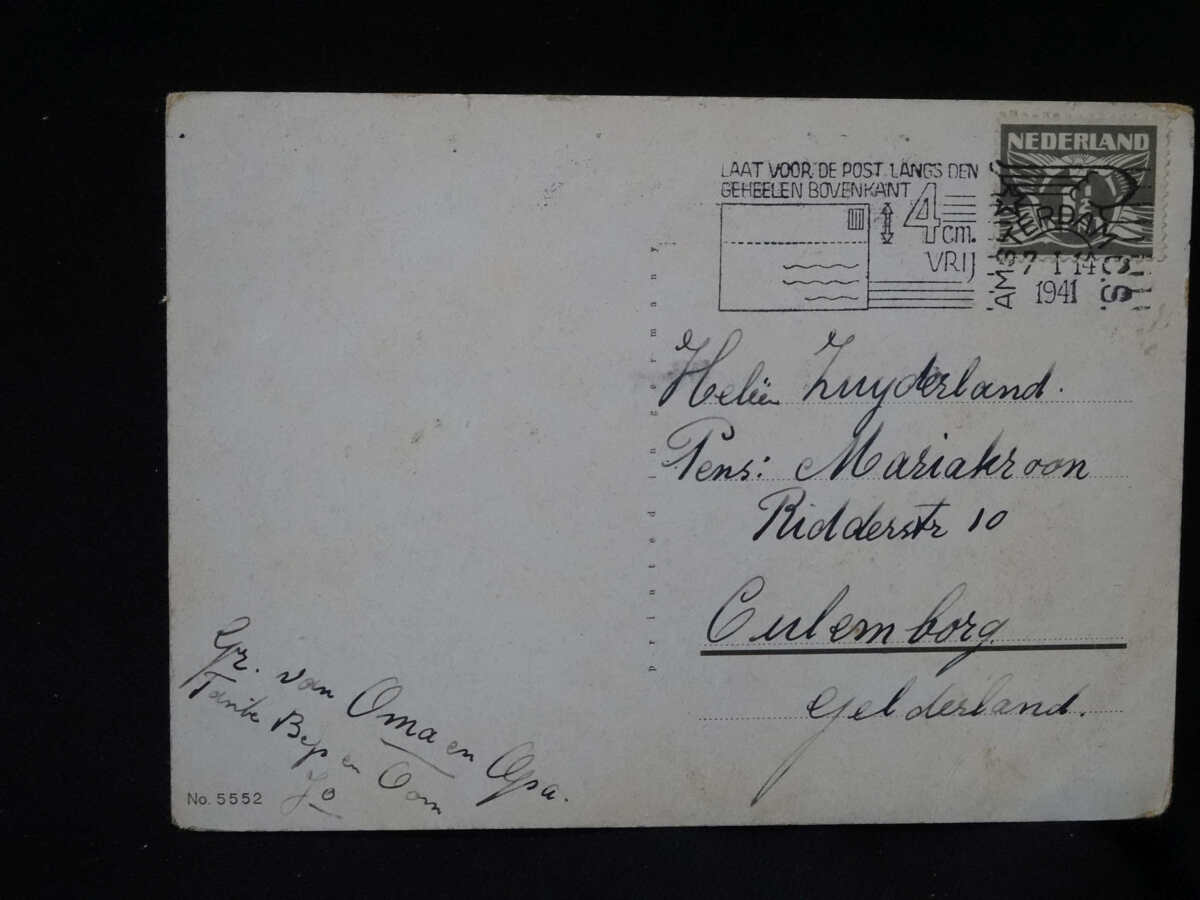 NEDERLAND
LAAT VOOR DE POST LANGS DEN
GEHEELEN BOVENKANT
4
cm.
VRIJ
AMSTERDAM
7 I 14
1941
printed in germany
Heleën Zuyderland.
Pens: Mariakroon
Ridderstr 10
Culemborg
Gelderland.
Gr. van Oma en Opa.
Tante Bep en Oom
Jo
No. 5552